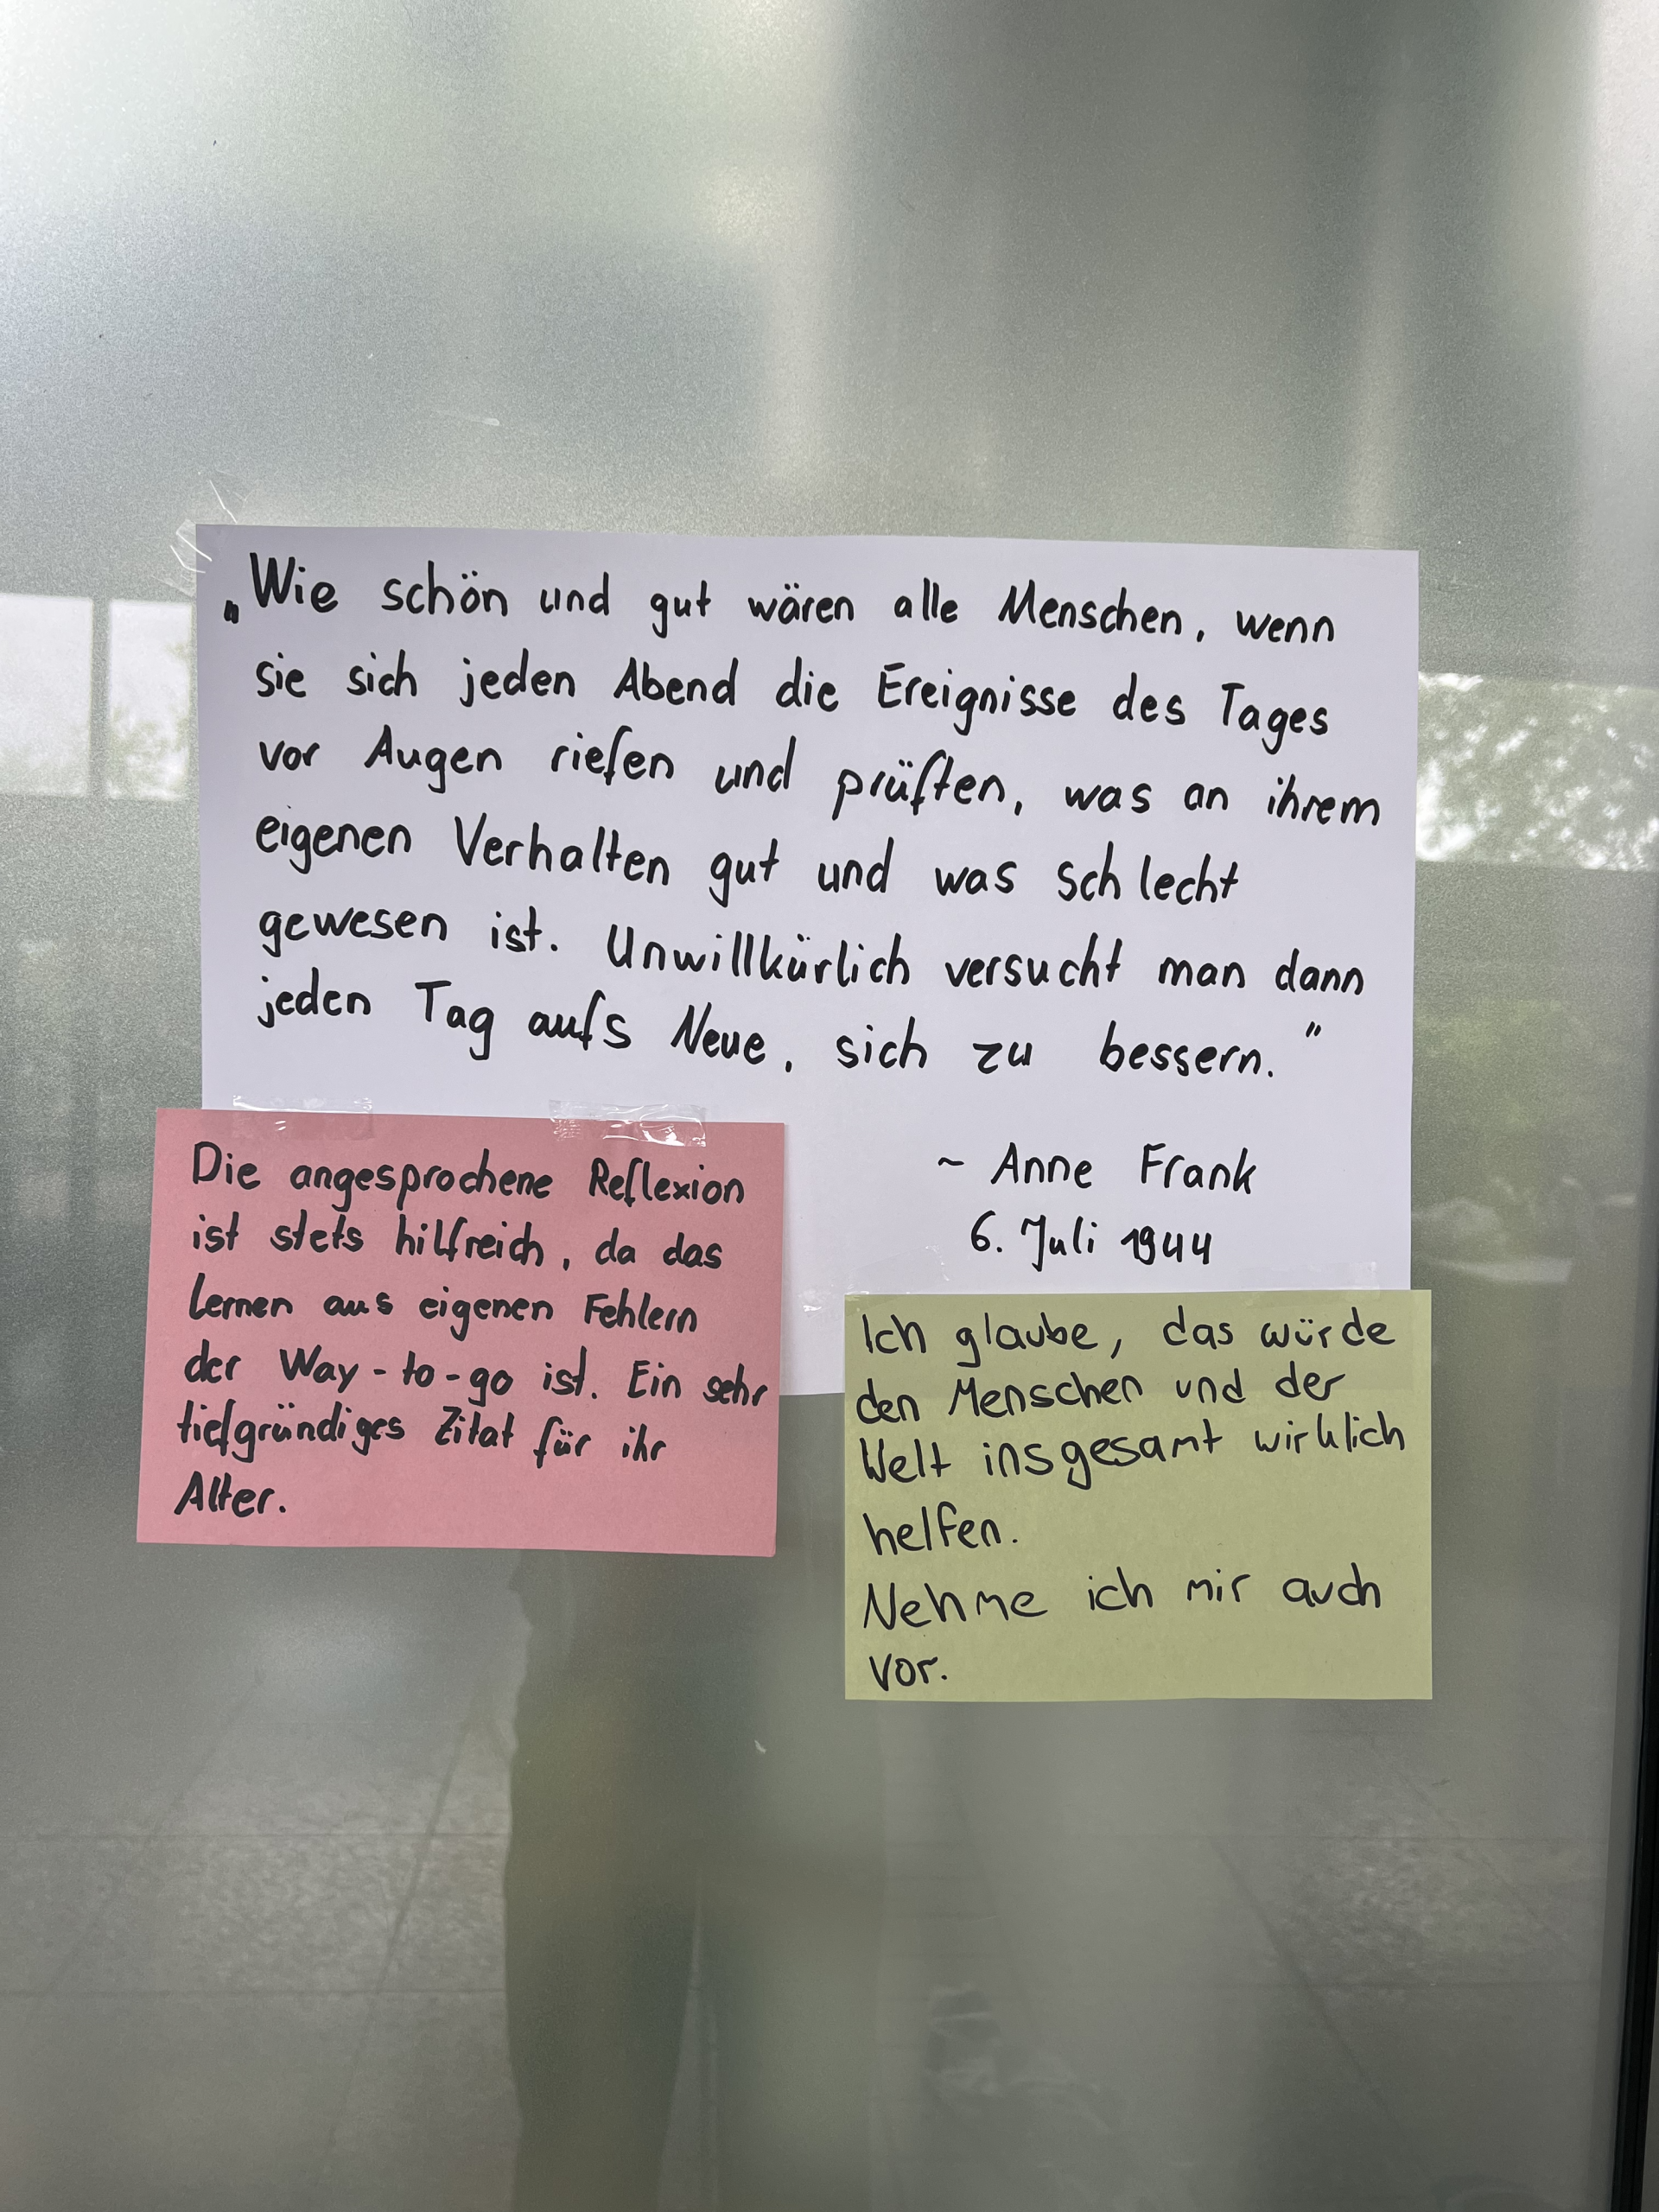 „Wie schön und gut wären alle Menschen, wenn
sie sich jeden Abend die Ereignisse des Tages
vor Augen riefen und prüften, was an ihrem
eigenen Verhalten gut und was schlecht
gewesen ist. Unwillkürlich versucht man dann
jeden Tag aufs Neue, sich zu bessern.”
~ Anne Frank
6. Juli 1944
Die angesprochene Reflexion
ist stets hilfreich, da das
Lernen aus eigenen Fehlern
der Way-to-go ist. Ein sehr
tiefgründiges Zitat für ihr
Alter.
Ich glaube, das würde
den Menschen und der
Welt insgesamt wirklich
helfen.
Nehme ich mir auch
vor.